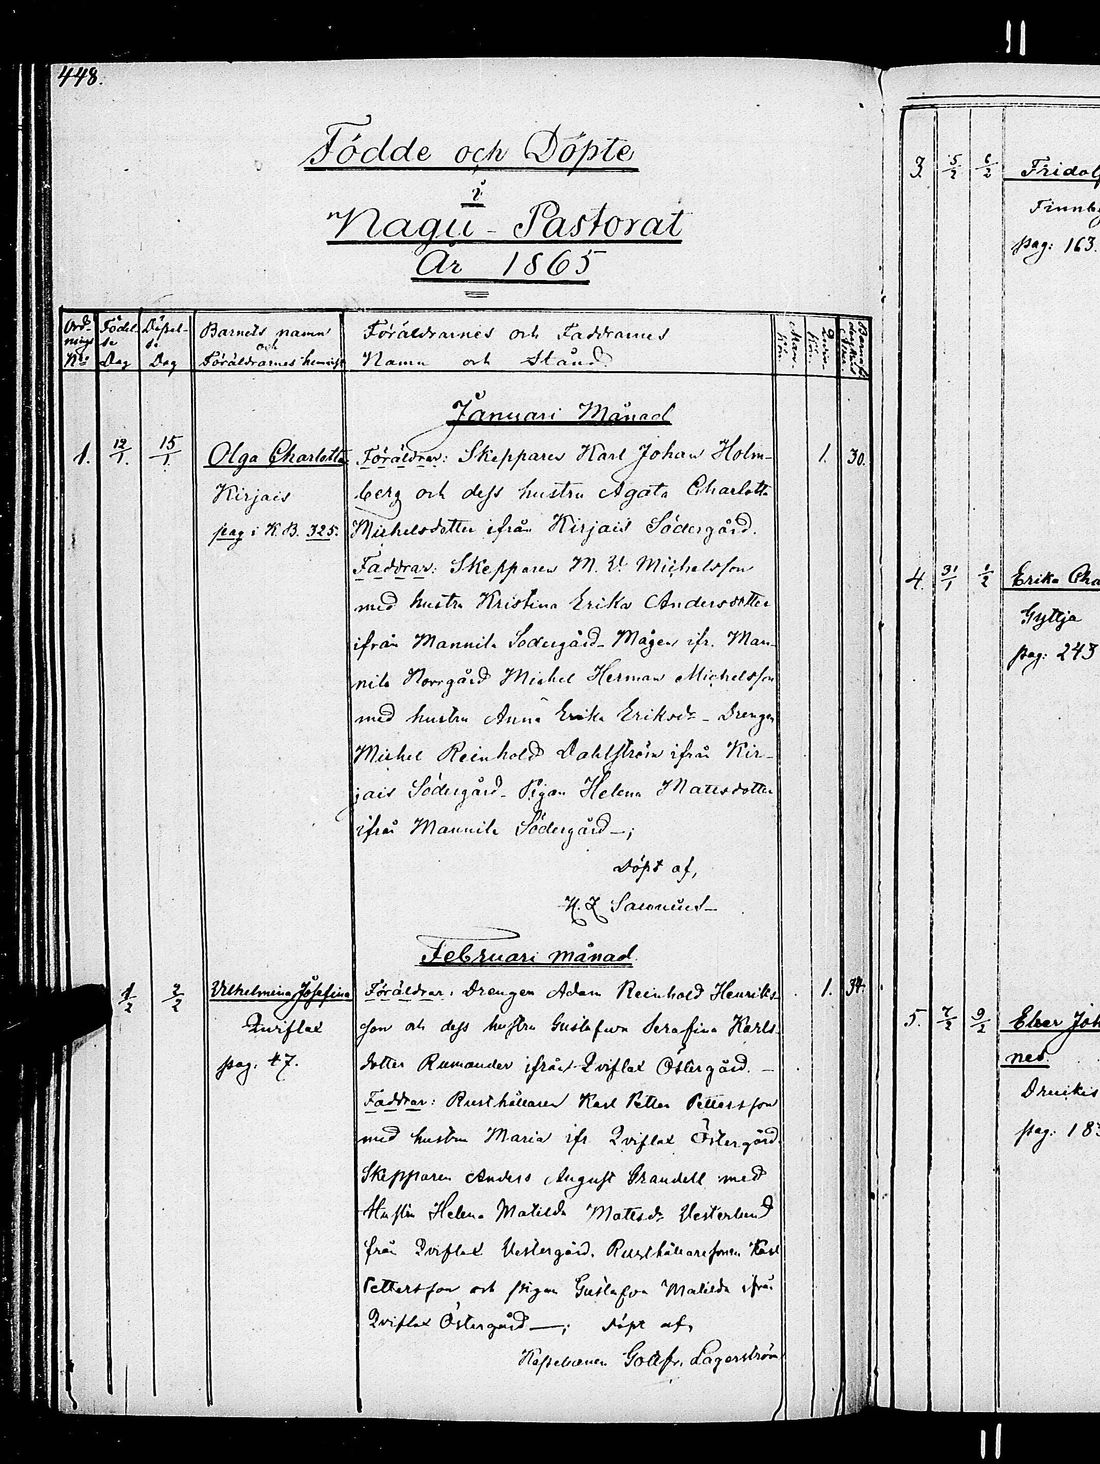 448.
Födde och Döpte
i
Nagu - Pastorat
År 1865
Ord-
nings
No
Födel-
se
Dag
Döpel-
se
Dag
Barnets namn
och
Föräldrarnes hemvist
Föräldrarnes och Faddrarnes
Namn och Stånd
Januari Månad
1. 12/1. 15/1. Olga Charlotta Föräldrar: Skepparen Karl Johan Holm- 1. 30.
Kirjais berg och dess hustru Agata Charlotta
pag i K.B. 325. Michelsdotter ifrån Kirjais Södergård.
Faddrar: Skepparen M. Michelsson
med hustru Kristina Erika Andersdotter
ifrån Mannila Södergård - Mågen ifr. Man-
nila Norrgård Michel Herman Michelsson
med hustru Anna Erika Eriksdr - Drengen
Michel Reinhold Dahlström ifrån Kir-
jais Södergård - Pigan Helena Matesdotter
ifrån Mannila Södergård —;
Döpt af,
Februari månad.
1/2 2/2 Vilhelmina Josefina Föräldrar, Drengen Adam Reinhold Henriks- 1. 34.
Qviflax son och dess hustru Gustafva Serafina Karls
pag. 47. dotter Rumander ifrån Qviflax Östergård. —
Faddrar: Rusthållaren Karl Petter Pettersson
med hustru Maria ifr Qviflax Östergård.
Skepparen Anders August Grandell med
Hustru Helena Matilda Matesdr Vesterlund
från Qviflax Vestergård. Rusthållaresonen Karl
Pettersson och pigan Gustafva Matilda ifrån
Qviflax Östergård —; döpt af,
Kapellanen Gottfr. Lagerström
3. 5/2 6/2 Fridolf
Finnby
pag: 163.
4. 31/1 1/2 Erika Cha
Gyttja
pag: 243
5. 7/2 9/2 Joh
nes.
pag: 183